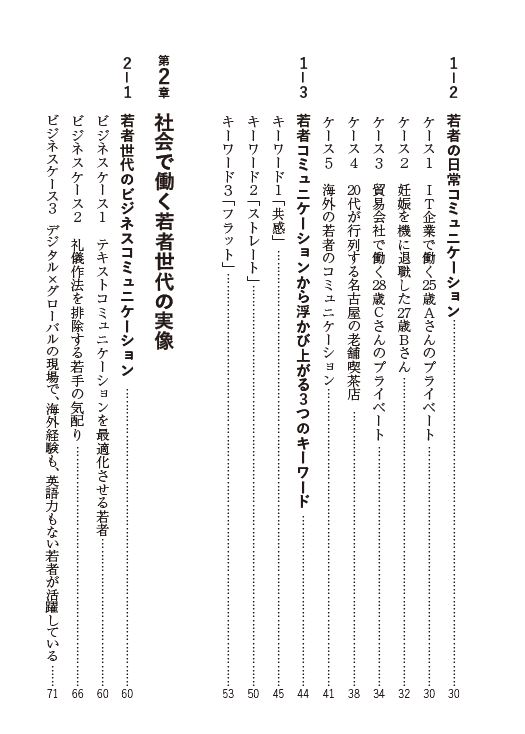 1-2 若者の日常コミュニケーション 30
ケース1 IT企業で働く25歳Aさんのプライベート 30
ケース2 妊娠を機に退職した27歳Bさん 32
ケース3 貿易会社で働く28歳Cさんのプライベート 34
ケース4 20代が行列する名古屋の老舗喫茶店 38
ケース5 海外の若者のコミュニケーション 41
1-3 若者コミュニケーションから浮かび上がる3つのキーワード 44
キーワード1「共感」 45
キーワード2「ストレート」 50
キーワード3「フラット」 53
第2章 社会で働く若者世代の実像
2-1 若者世代のビジネスコミュニケーション 60
ビジネスケース1 テキストコミュニケーションを最適化させる若者 60
ビジネスケース2 礼儀作法を排除する若手の気配り 66
ビジネスケース3 デジタル×グローバルの現場で、海外経験も、英語力もない若者が活躍している 71